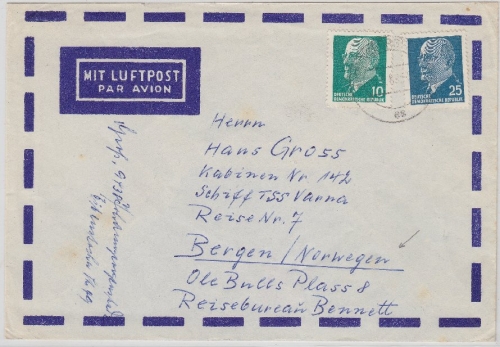 MIT LUFTPOST
PAR AVION
10
DEUTSCHE
DEMOKRATISCHE REPUBLIK
25
DEUTSCHE
DEMOKRATISCHE REPUBLIK
Herrn
Hans Gross
Kabinen Nr 142
Schiff TSS Varna
Reise Nr. 7
Bergen/Norwegen
Ole Bulls Plass 8
Reisebureau Bennett